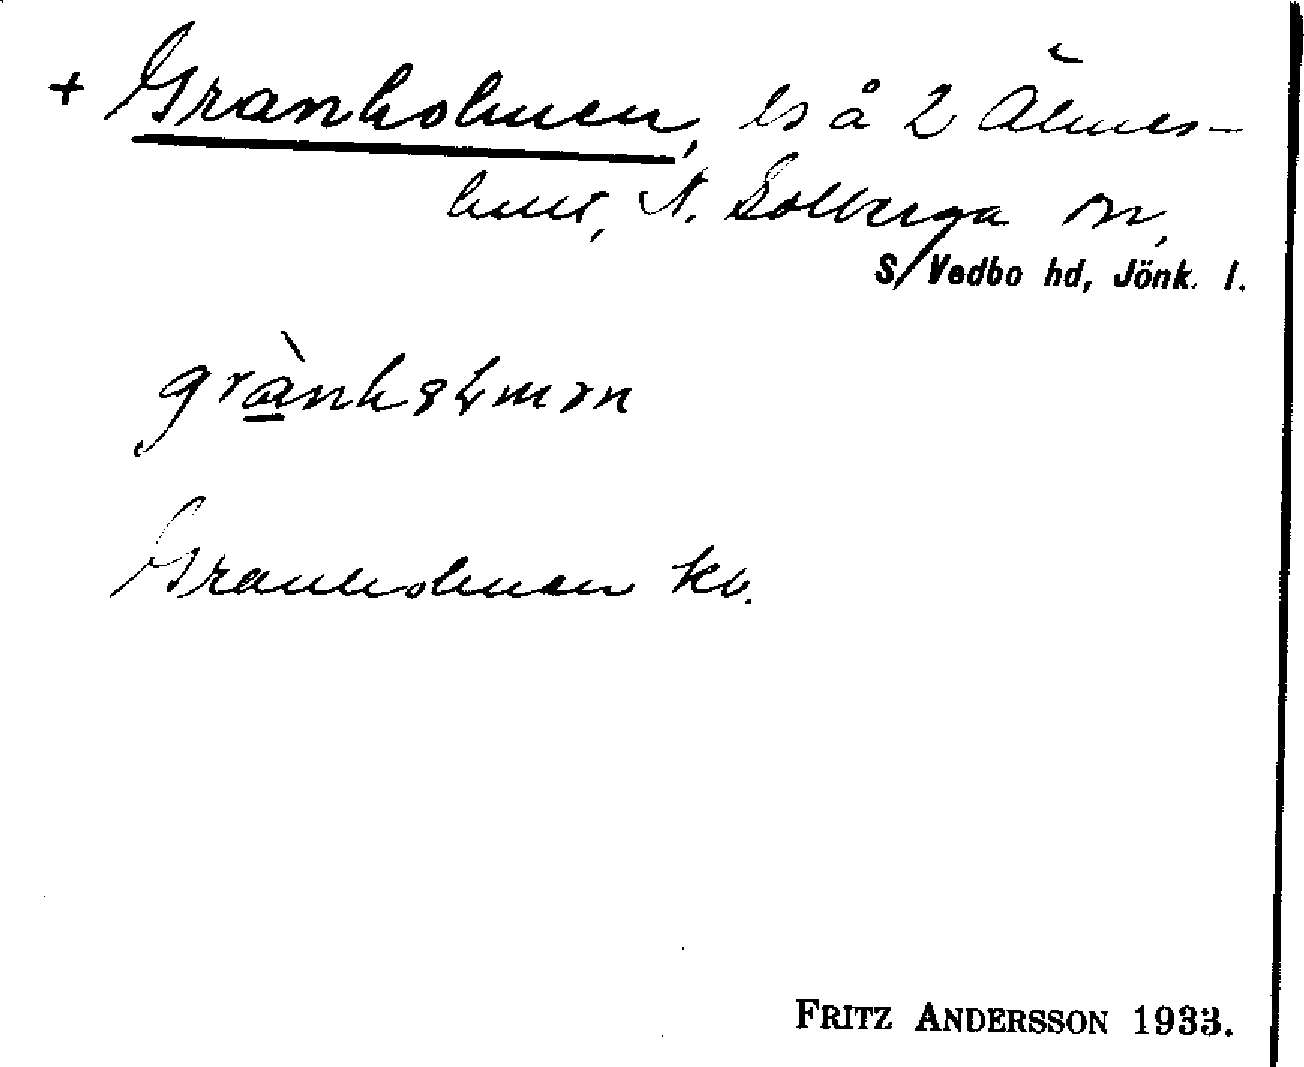 + Granholmen, ls å 2 Älmes-
hult, N. Solberga sn,
S/Vedbo hd, Jönk. l.
grànhɷɫmɘn
Granholmen kb.
FRITZ ANDERSSON 1933.